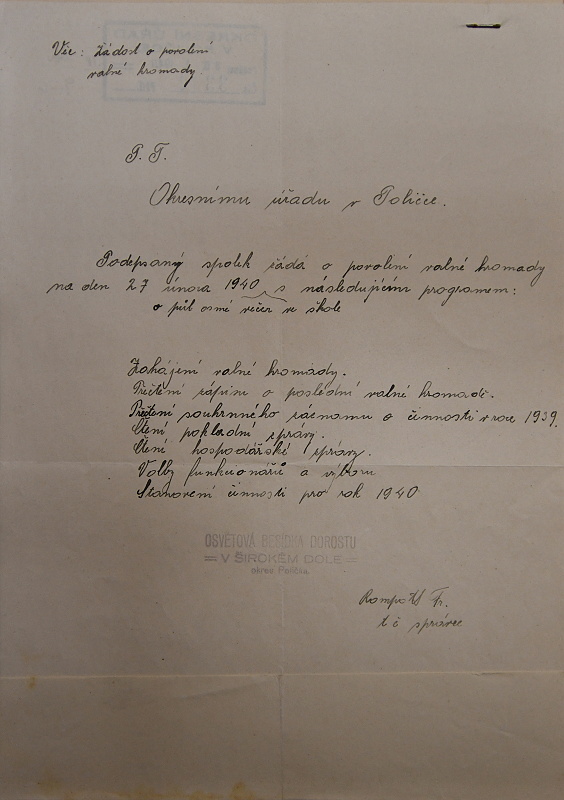 Věc: Žádost o povolení
valné hromady.
P. T.
Okresnímu úřadu v Poličce.
Podepsaný spolek žádá o povolení valné hromady
na den 27 února 1940 s následujícím programem:
o půl osmé večer ve škole
Zahájení valné hromady.
Přečtení zápisu o poslední valné hromadě.
Přečtení souhrnného záznamu o činnosti v roce 1939.
Čtení pokladní zprávy.
Čtení hospodářské zprávy.
Volby funkcionářů a výboru
Stanovení činnosti pro rok 1940
OSVĚTOVÁ BESÍDKA DOROSTU
V ŠIROKÉM DOLE
okres Polička.
Fr.
t č správce